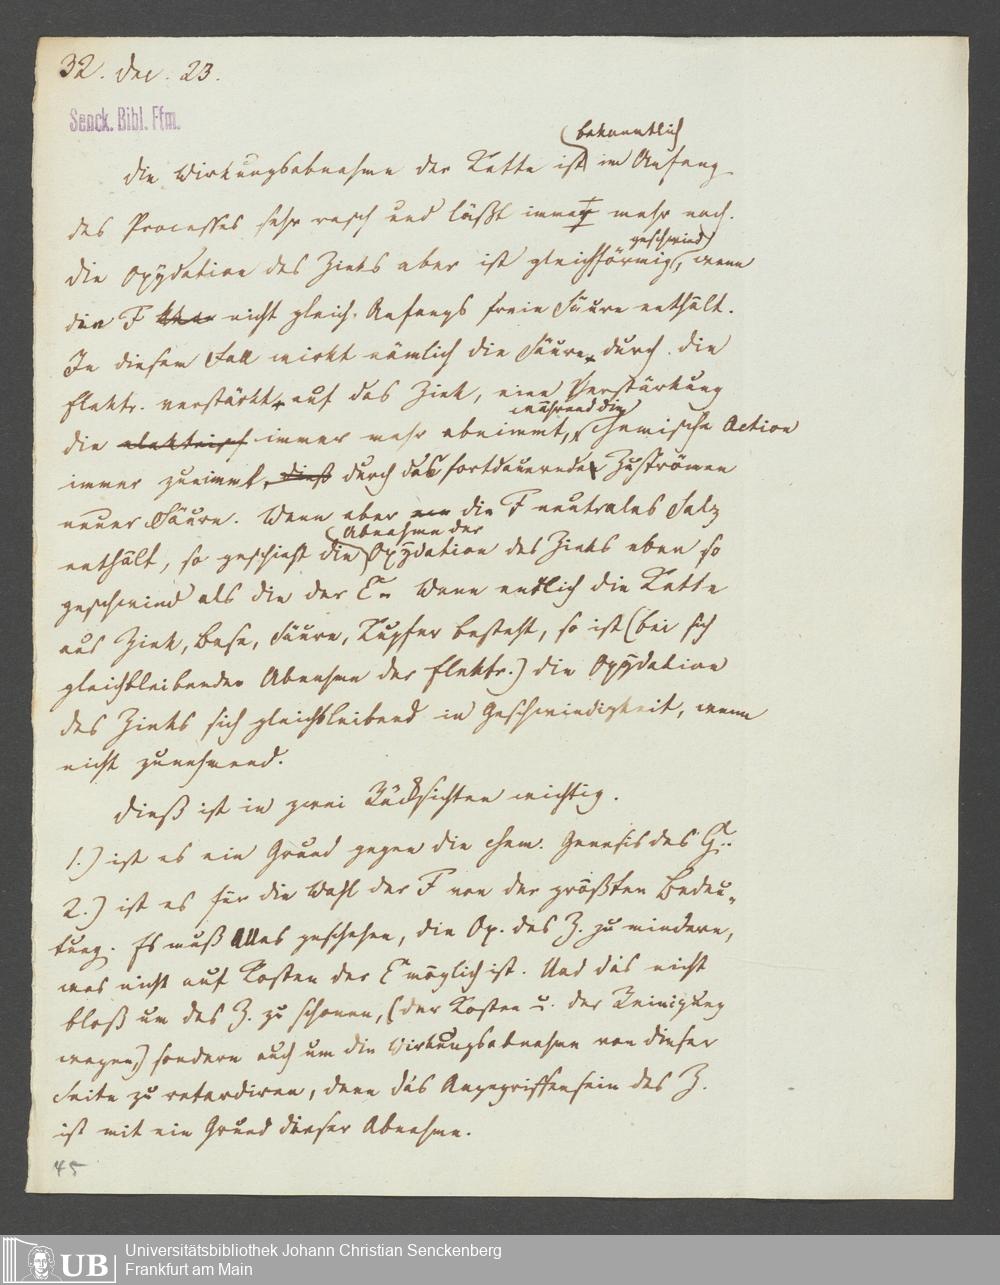 32. Dec. 23.
Senck. Bibl. Ffm.
bekanntlich
Die Wirkungsabnahme der Kette ist im Anfang
des Processes sehr rasch und läßt immer mehr nach.
geschwind
Die Oxydation des Zinks aber ist gleichförmig, wenn
die F nicht gleich Anfangs freie Säure enthält.
In diesem Fall wirkt nämlich die Säure, durch die
Elektr. verstärkt, auf das Zink, eine Verstärkung
während die
die elektrisch immer mehr abnimmt, chemische Action
immer zunimmt, dieß durch das fortdauernde Zuströmen
neuer Säure. Wenn aber die F neutrales Salz
Abnahme der
enthält, so geschieht die Oxydation des Zinks eben so
geschwind als die der E. Wenn endlich die Kette
aus Zink, Base, Säure, Kupfer besteht, so ist (bei sich
gleichbleibender Abnahme der Elektr.) die Oxydation
des Zinks sich gleichbleibend in Geschwindigkeit, wenn
nicht zunehmend.
Dieß ist in zwei Rücksichten wichtig.
1.) ist es ein Grund gegen die chem. Genesis des G.
2.) ist es für die Wahl der F von der größten Bedeu-
tung. Es muß Alles geschehen, die Ox. des Z. zu mindern,
was nicht auf Kosten der E möglich ist. Und das nicht
bloß um das Z. zu schonen, (der Kosten u. der Reinigung
wegen,) sondern auch um die Wirkungsabnahme von dieser
Seite zu retardiren, denn das Angegriffensein des Z.
ist mit ein Grund dieser Abnahme.
45
UB
Universitätsbibliothek Johann Christian Senckenberg
Frankfurt am Main